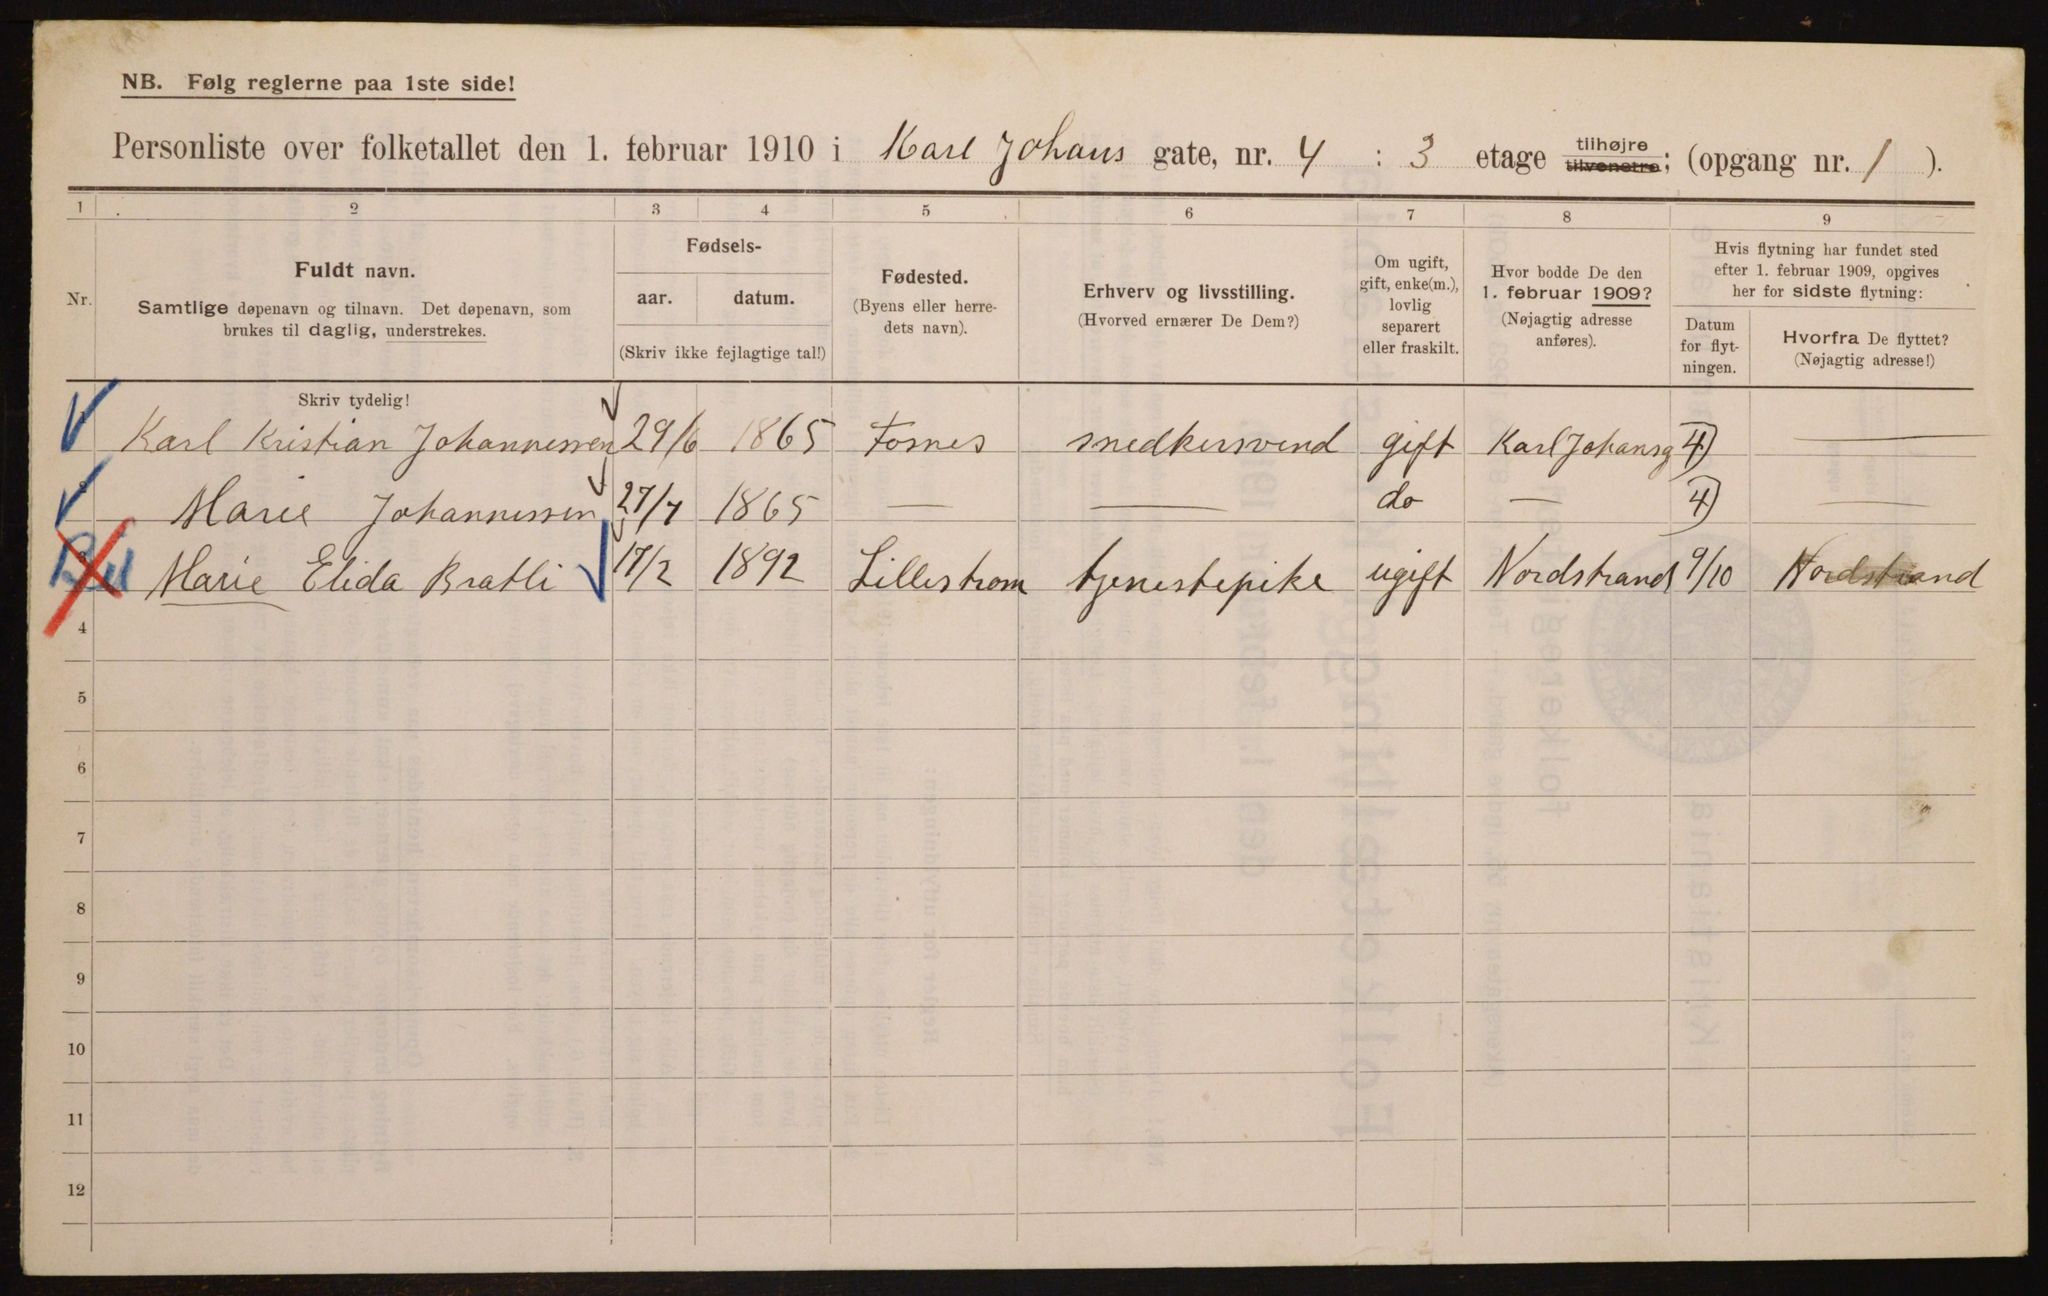 NB. Følg reglerne paa 1ste side!
Personliste over folketallet den 1. februar 1910 i Karl Johans gate, nr. 4 : 3 etage tilhøjre tilvenstre; (opgang nr. 1 ).
1 2 3 4 5 6 7 8 9
Nr.
Fuldt navn.
Samtlige døpenavn og tilnavn. Det døpenavn, som
brukes til daglig, understrekes.
Fødsels-
aar. datum.
(Skriv ikke fejlagtige tal!)
Fødested.
(Byens eller herre-
dets navn).
Erhverv og livsstilling.
(Hvorved ernærer De Dem?)
Om ugift,
gift, enke(m.),
lovlig
separert
eller fraskilt.
Hvor bodde De den
1. februar 1909?
(Nøjagtig adresse
anføres).
Hvis flytning har fundet sted
efter 1. februar 1909, opgives
her for sidste flytning:
Datum
for flyt-
ningen.
Hvorfra De flyttet?
(Nøjagtig adresse!)
Skriv tydelig!
Karl Kristian Johannessen 29/6 1865 Fosnes snedkersvend gift Karl Johansg 4) —
Marie Johannessen 27/7 1865 — — do — 4) —
3 Marie Elida Bratli 17/2 1892 Lillestrøm tjenestepike ugift Nordstrand 9/10 Nordstrand
4
5
6
7
8
9
10
11
12